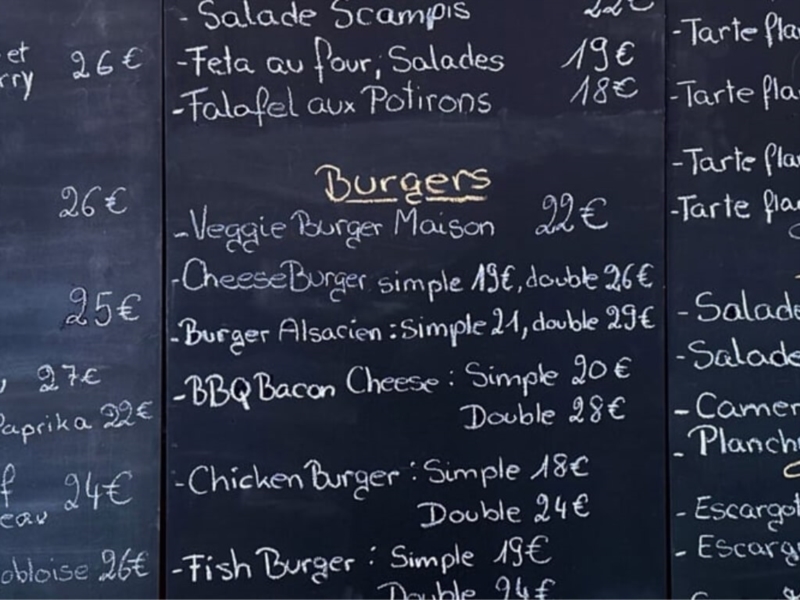 et
rry 26€
26€
25€
27€
Paprika 22€
24€
eau
obloise 26€
- Salade Scampis 22€
- Feta au four, Salades 19€
- Falafel aux Potirons 18€
Burgers
- Veggie Burger Maison 22€
- CheeseBurger simple 19€, double 26€
- Burger Alsacien : Simple 21, double 29€
- BBQ Bacon Cheese : Simple 20€
Double 28€
- Chicken Burger : Simple 18€
Double 24€
- Fish Burger : Simple 19€
Double 24€
- Tarte fla
- Tarte fla
- Tarte fla
- Tarte flam
- Salade
- Salade
- Camer
- Planch
- Escargot
- Escarg